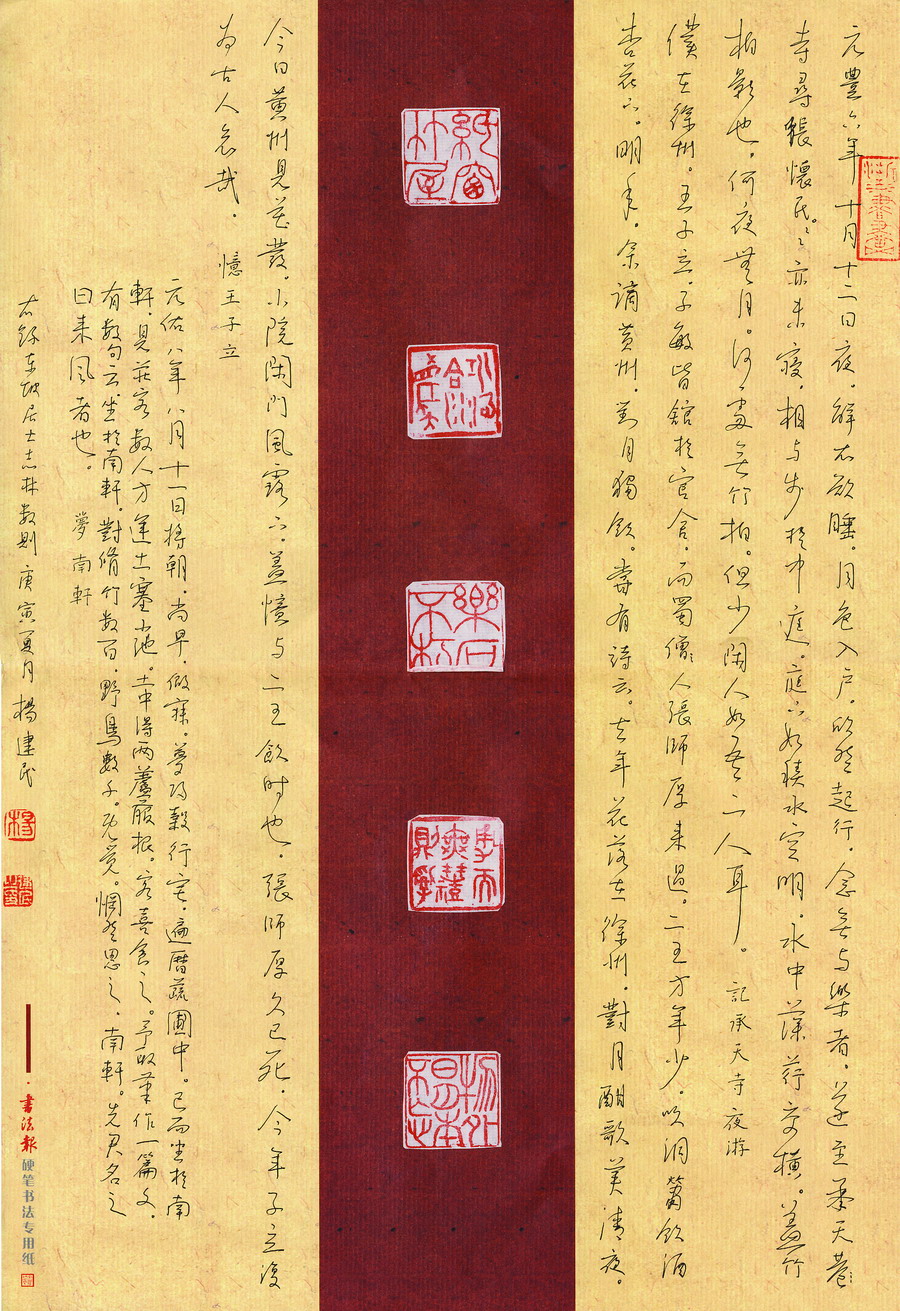 元豐六年十月十二日夜。解衣欲睡。月色入户。欣然起行。念無与樂者。遂至承天巷
寺尋張懷民。〻亦未寢。相与步於中庭。庭下如積水空明。水中藻荇交横。盖竹
柏影也。何夜無月。何處無竹柏。但少閑人如吾二人耳。 記承天寺夜游
僕在徐州。王子立。子敏皆館於官舍。而蜀僧人張師厚来過。二王方年少。吹洞簫飲酒
杏花下。明年。余謫黄州。對月獨飲。嘗有詩云。去年花落在徐州。對月酣歌美清夜。
今日黄州見花發。小院閑門風露下。盖憶与二王飲时也。張師厚久已死。今年子立復
为古人哀哉。 憶王子立
元佑八年八月十一日将朝。尚早。假寐。夢歸縠行宅。遍曆蔬圃中。已而坐於南
軒。見莊客数人方運土塞小池。土中得兩蘆菔根。客喜食之。予取筆作一篇文。
有数句云坐於南軒。對脩竹数百。野鳥數千。既覺。惘然思之。南軒。先君名之
曰来風者也。 夢南軒
右録東坡居士志林数則 庚寅夏月 楊建民
书法报硬笔书法专用纸